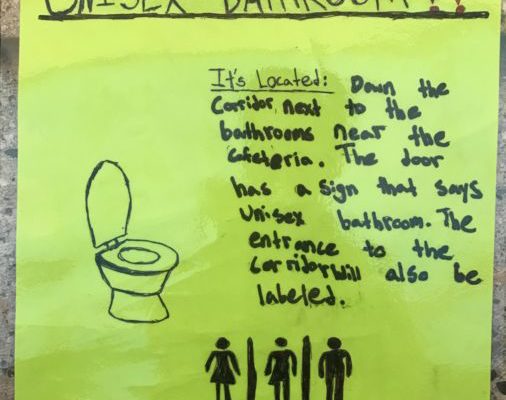 UNISEX BATHROOM !!
It's Located: Down the
Corridor, next to the
bathrooms near the
Cafeteria. The door
has a sign that says
Unisex bathroom. The
entrance to the
Corridor will also be
labeled.